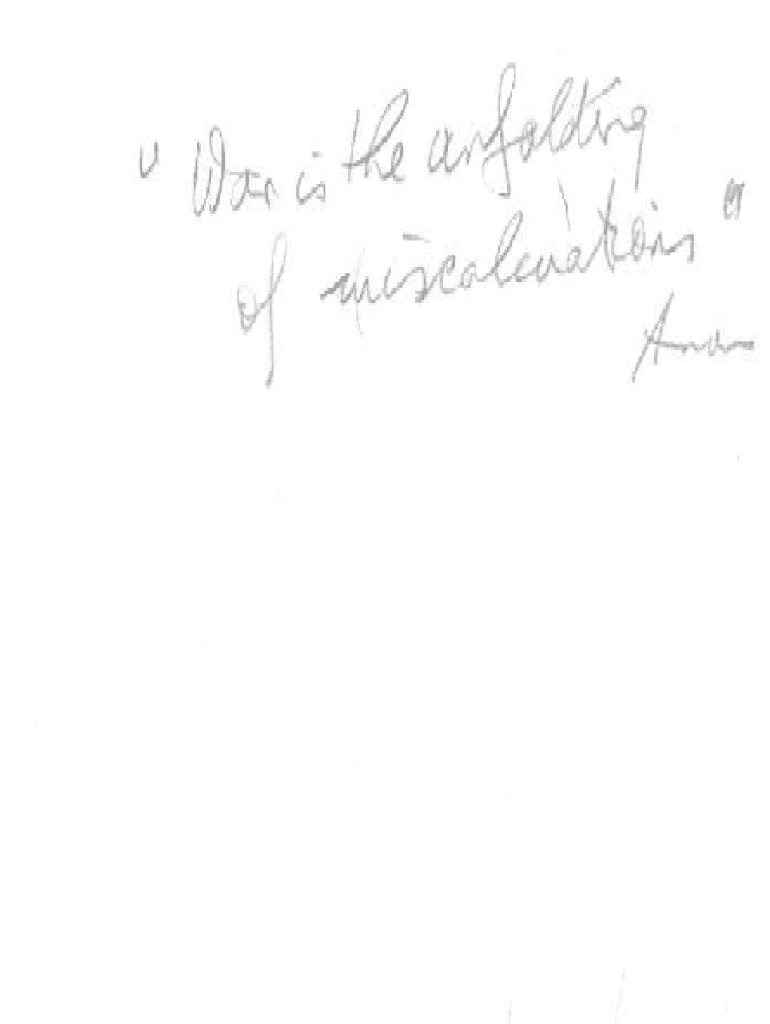 "War is the unfolding
of miscalculations"